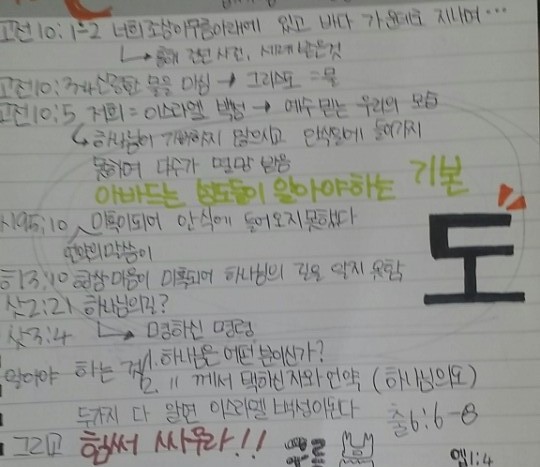 고전10:1-2 너희 조상이 구름아래에 있고 바다 가운데로 지나며...
↳ 홍해 건넌 사건, 세례 받은것
고전10:3-4 신령한 물을 마심 → 그리스도 = 물
고전10:5 저희 = 이스라엘 백성 → 예수 믿는 우리의 모습
↳ 하나님이 기뻐하지 않으시고 안식일에 들어가지
못하여 다수가 멸망 받음
아바드는 성도들이 알아야하는 기본
도
시95:10 미혹이되어 안식에 들어오지 못했다
언약의말씀이
히3:10 항상 마음이 미혹되어 하나님의 길을 알지 못함
삿2:21 하나님의길?
삿3:4 ↳ 명하신 명령
알아야 하는 것 1. 하나님은 어떤 분이신가?
2. 〃 께서 택하신 자와 언약 (하나님의도)
두가지 다 알면 이스라엘 백성이된다
출6:6-8
그리고 힘써 싸우라!!
엡1:4